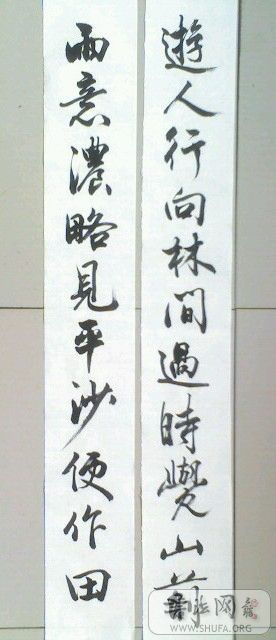 遊人行向林間過時覺山前
雨意濃略見平沙便作田
書法网
WWW.SHUFA.ORG